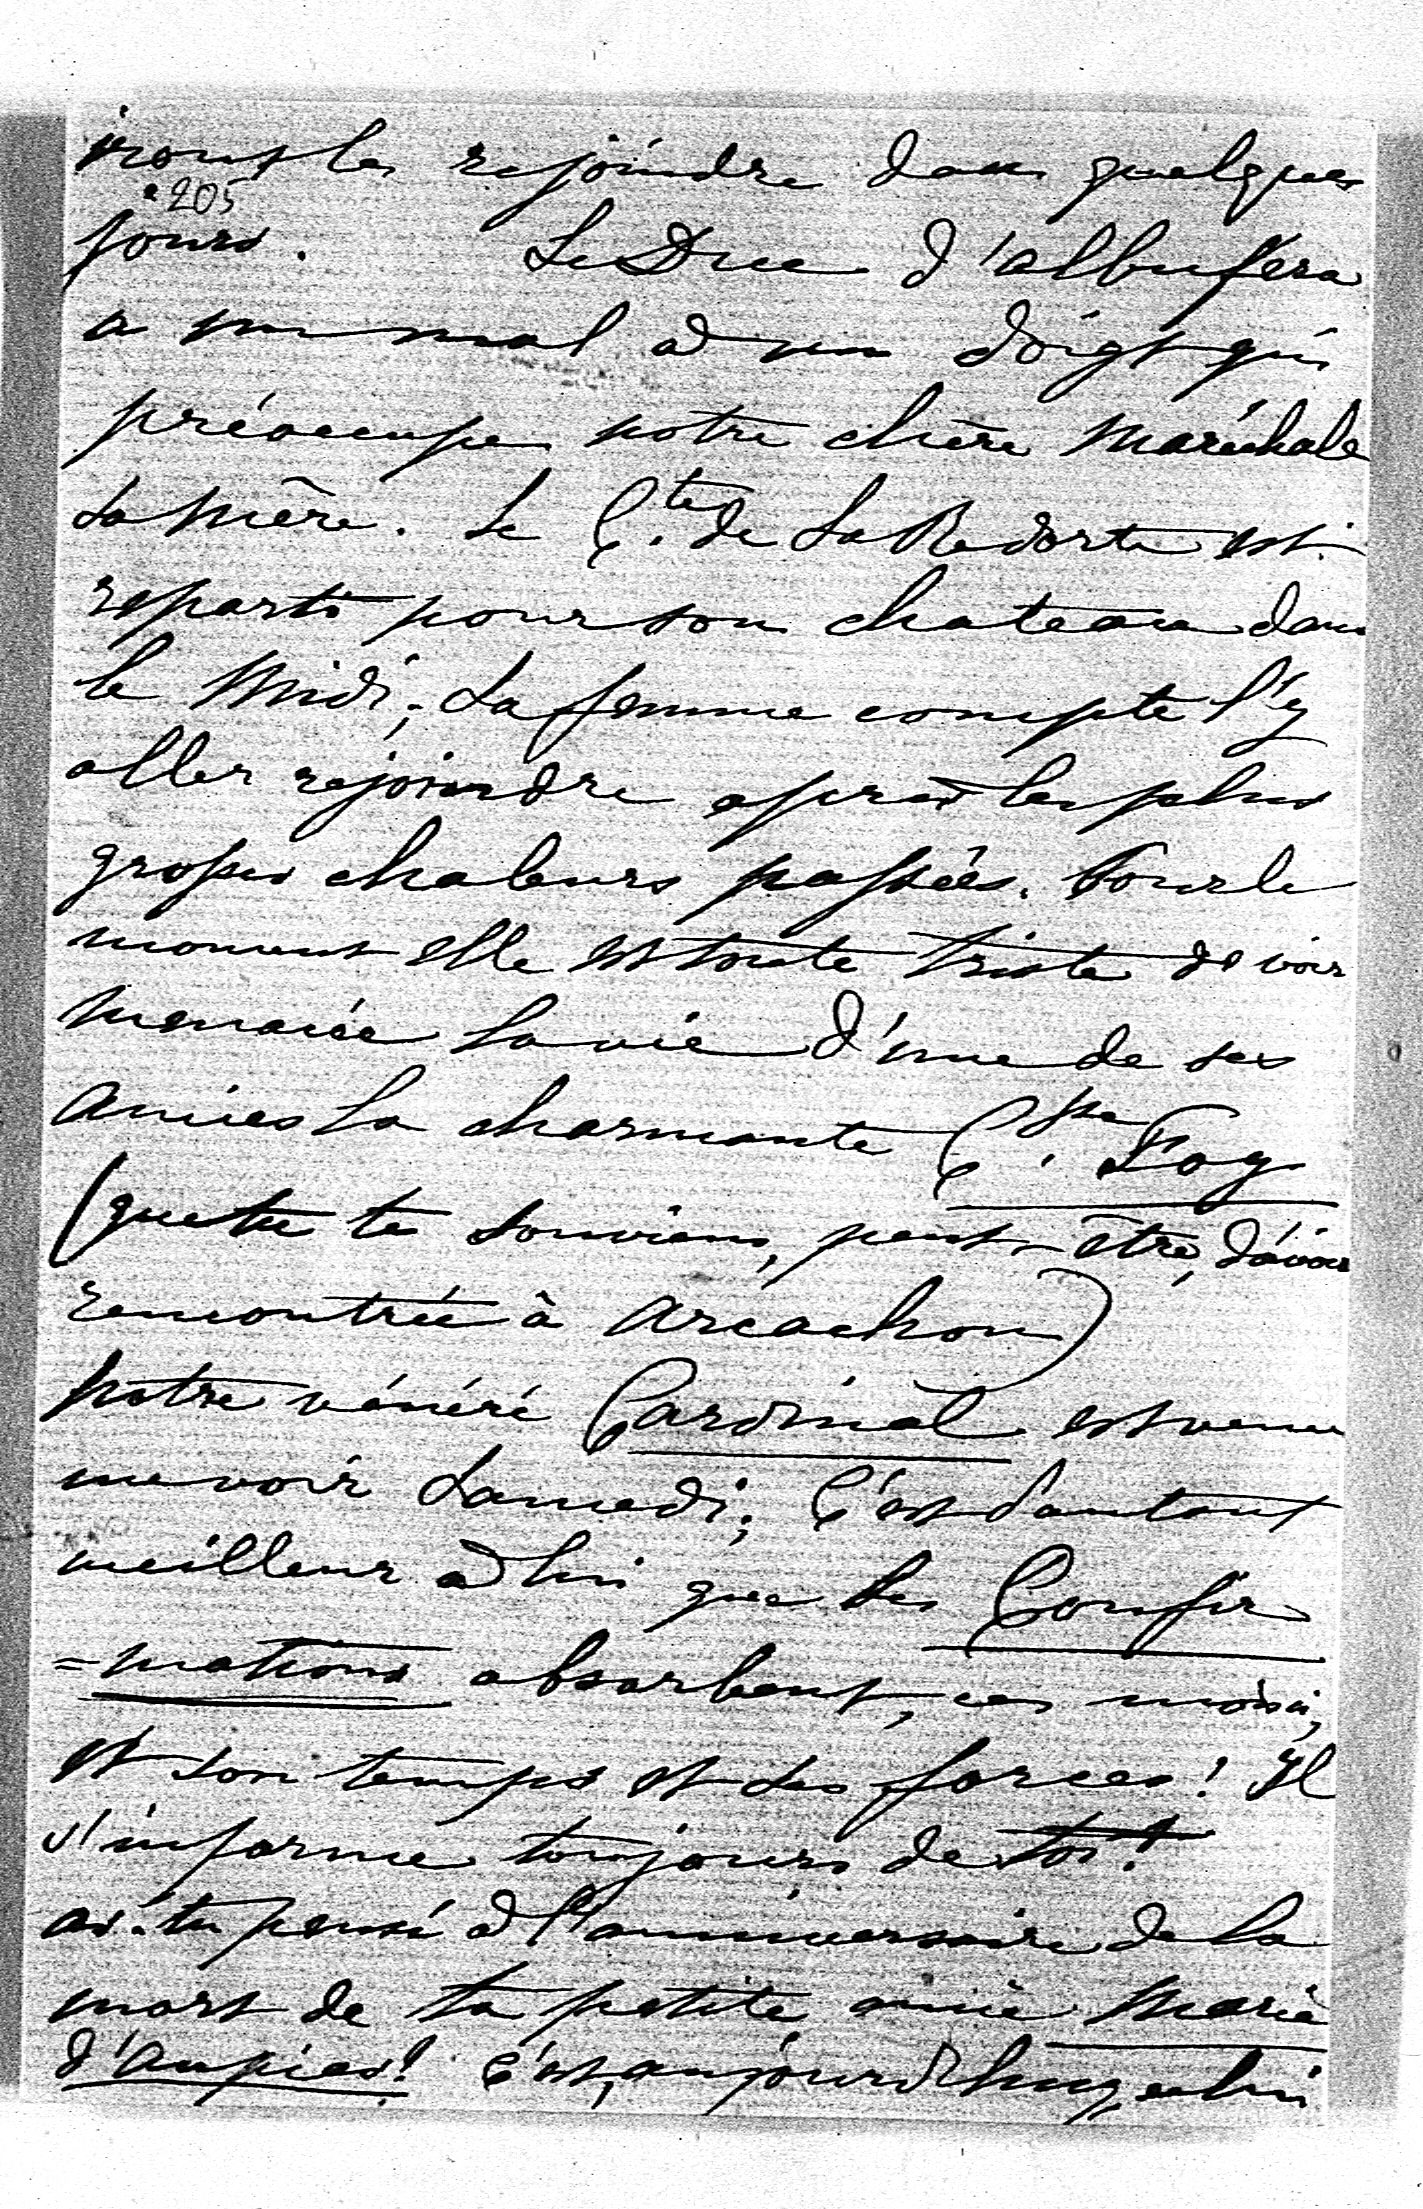 irons les rejoindre dans quelques
205
jours. Le Duc d'albufera
a un mal à un doigt qui
préoccupe notre chère Maréchale
Sa Mère. Le C.te de La Redorte est
reparti pour son chateau dans
le Midi; Sa femme compte l'y
aller rejoindre après les plus
grosses chaleurs passées. Pour le
moment elle est toute triste de voir
menacée la vie d'une de ses
amies la charmante C.sse Foy
(que tu te souviens, peut-être, d'avoir
rencontrée à Arcachon)
Notre vénéré Cardinal est venu
me voir Samedi; C'est d'autant
meilleur à lui que les Confir
=mations absorbent, ces mois ci,
et son temps et ses forces! Il
s'informe toujours de toi!
as-tu pensé à l'anniversaire de la
mort de ta petite amie Marie
d'Aupias! C'est, aujourd'huy, celui